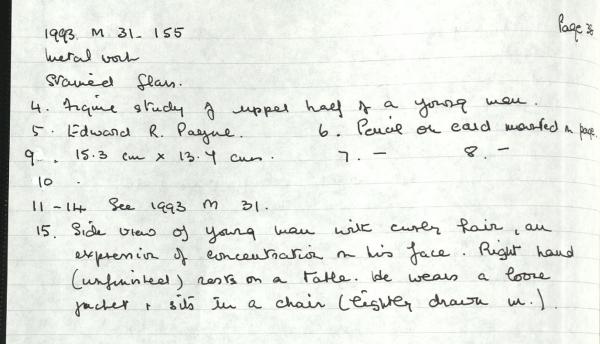 1993 M 31-155
Page 38
Metal work
Stained Glass.
4. Figure study of upper half of a young man.
5. Edward R. Payne. 6. Pencil on card mounted on page.
9. 15.3 cm x 13.4 cms. 7. - 8. -
10.
11-14 See 1993 M 31.
15. Side view of young man with curly hair, an
expression of concentration on his face. Right hand
(unfinished) rests on a table. He wears a loose
jacket & sits in a chair (lightly drawn in.).